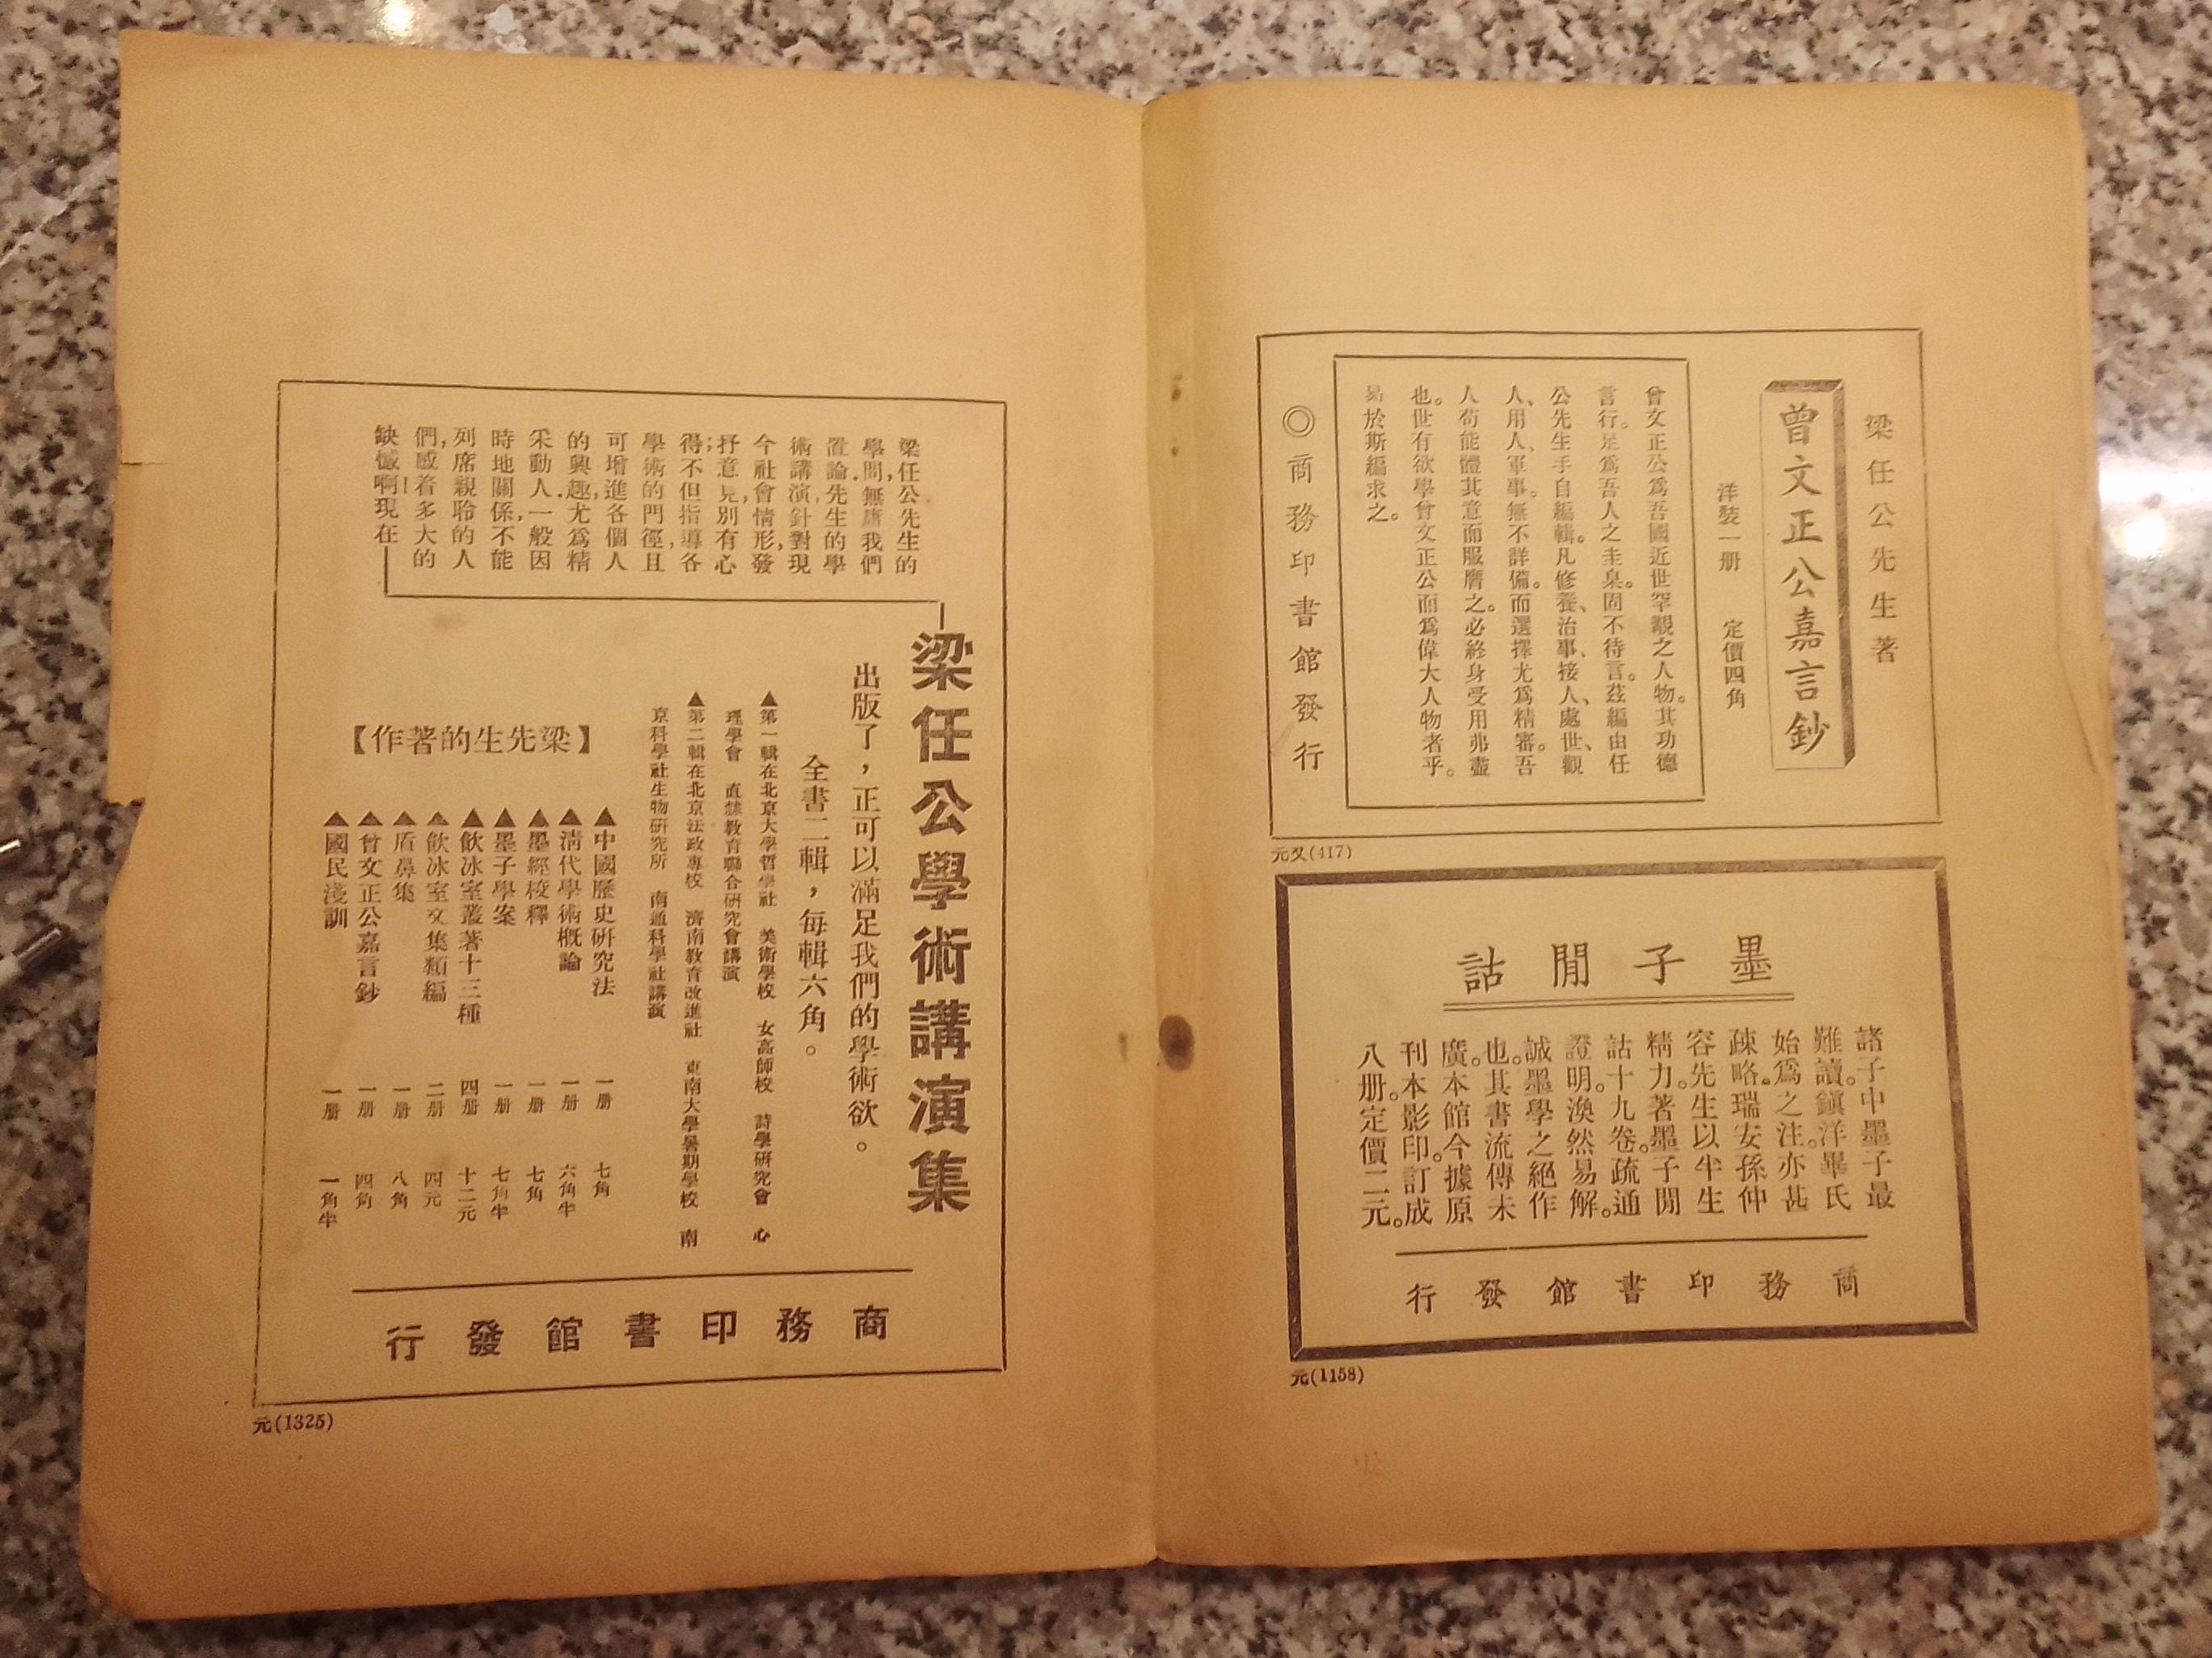 梁任公先生著
曾文正公嘉言鈔
洋裝一册　定價四角
曾文正公爲吾國近世罕覯之人物。其功德
言行。足爲吾人之圭臬。固不待言。茲編由任
公先生手自編輯。凡修養、治事、接人、處世、觀
人、用人、軍事。無不詳備。而選擇尤爲精審。吾
人苟能體其意而服膺之。必終身受用弗盡
也。世有欲學曾文正公而爲偉大人物者乎。
易於斯編求之。
◎商務印書館發行
元爻(417)
墨子閒詁
諸子中墨子最
難讀。鎭洋畢氏
始爲之注。亦甚
疎略。瑞安孫仲
容先生以半生
精力。著墨子閒
詁十九卷。疏通
證明。渙然易解。
誠墨學之絕作
也。其書流傳未
廣。本館今據原
刊本影印。訂成
八册。定價二元。
商務印書館發行
元(1158)
梁任公先生的
學問,無庸我們
置論.先生的學
術講演,針對現
今社會情形,發
抒意見,別有心
得;不但指導各
學術的門徑,且
可增進各個人
的興趣,尤爲精
采動人.一般因
時地關係,不能
列席親聆的人
們,感着多大的
缺憾啊!現在
梁任公學術講演集
出版了，正可以滿足我們的學術欲。
全書二輯，每輯六角。
▲第一輯在北京大學哲學社　美術學校　女高師校　詩學研究會　心
理學會　直隸教育聯合研究會講演
▲第二輯在北京法政專校　濟南教育改進社　東南大學暑期學校　南
京科學社生物研究所　南通科學社講演
【梁先生的著作】
▲中國歷史研究法　一册　七角
▲淸代學術槪論　一册　六角半
▲墨經校釋　一册　七角
▲墨子學案　一册　七角半
▲飮冰室叢著十三種　四册　十二元
▲飮冰室文集類編　二册　四元
▲盾鼻集　一册　八角
▲曾文正公嘉言鈔　一册　四角
▲國民淺訓　一册　一角半
商務印書館發行
元(1325)